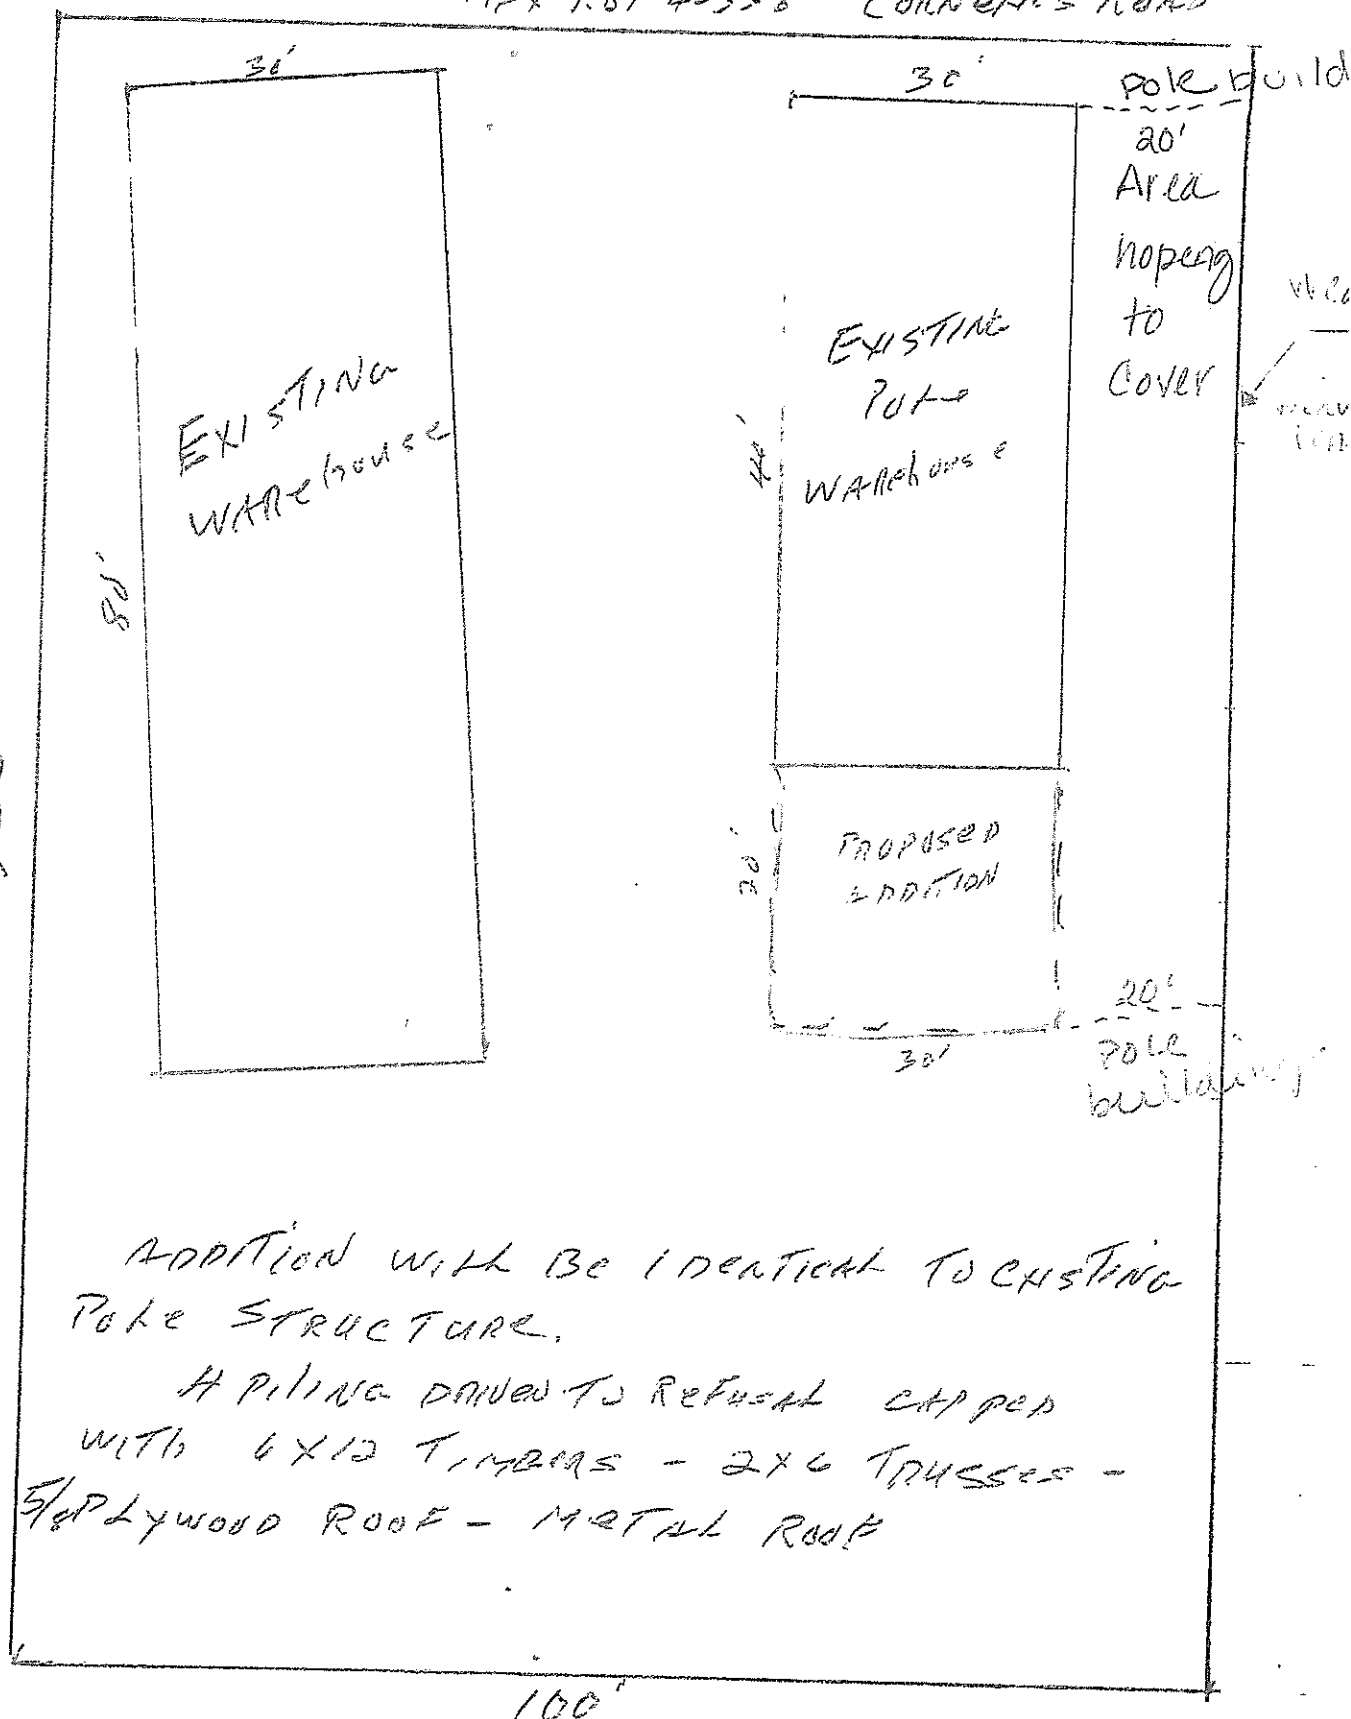 ROAD
30'
30'
pole build
20'
Area
hopeing
to
Cover
EXISTING
WAREhouse
EXISTING
Pole
WAREhouse
80'
PROPOSED
ADDITION
20'
30'
20'
pole
building
ADDITION WILL Be IDenTICAL TO eXISTING
PoLe STRUCTURe.
4 PiLING DRIVEN To ReFusAL CAPPeD
WITh 6X12 TIMBeRS - 2X6 TRUSSes -
5/8 PLYWOOD ROOF - MeTAL ROOF
100'